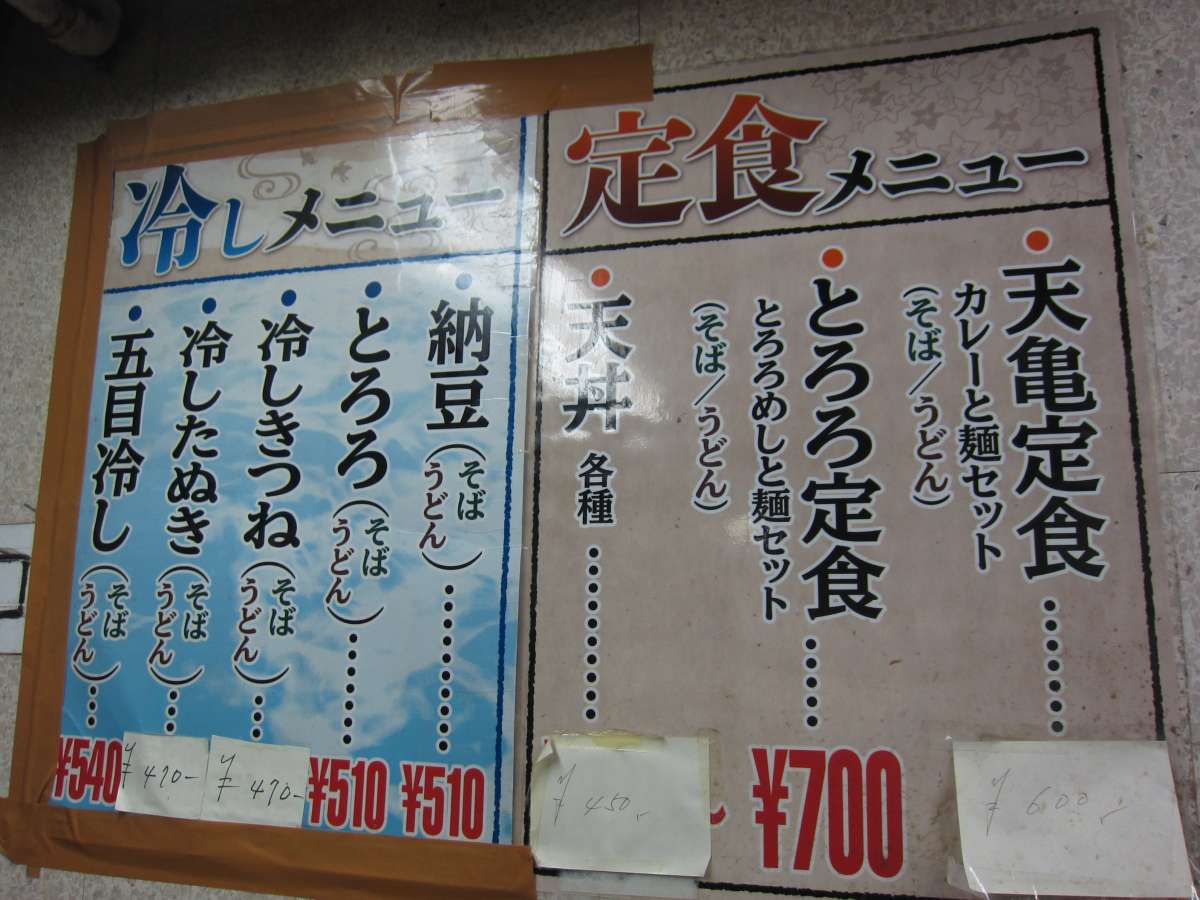 冷しメニュー
・納豆(そば うどん)………… ¥510
・とろろ(そば うどん)……… ¥510
・冷しきつね(そば うどん)… ¥470-
・冷したぬき(そば うどん)… ¥470-
・五目冷し(そば うどん)… ¥540
定食メニュー
・天亀定食……
カレーと麺セット
(そば/うどん)
¥600,-
・とろろ定食……
とろろめしと麺セット
(そば/うどん)
¥700
・天丼 各種…………
¥450,-
～